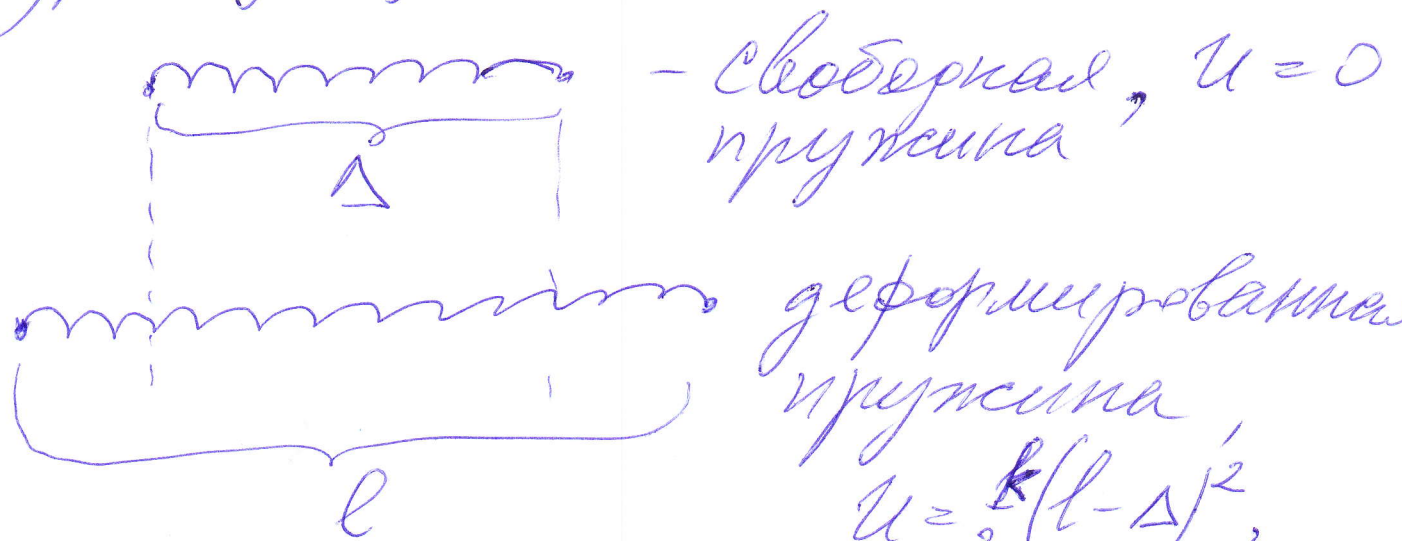 - свободная, U = 0
пружина
Δ
деформированная
пружина,
l
U = k/2 (l - Δ)²,